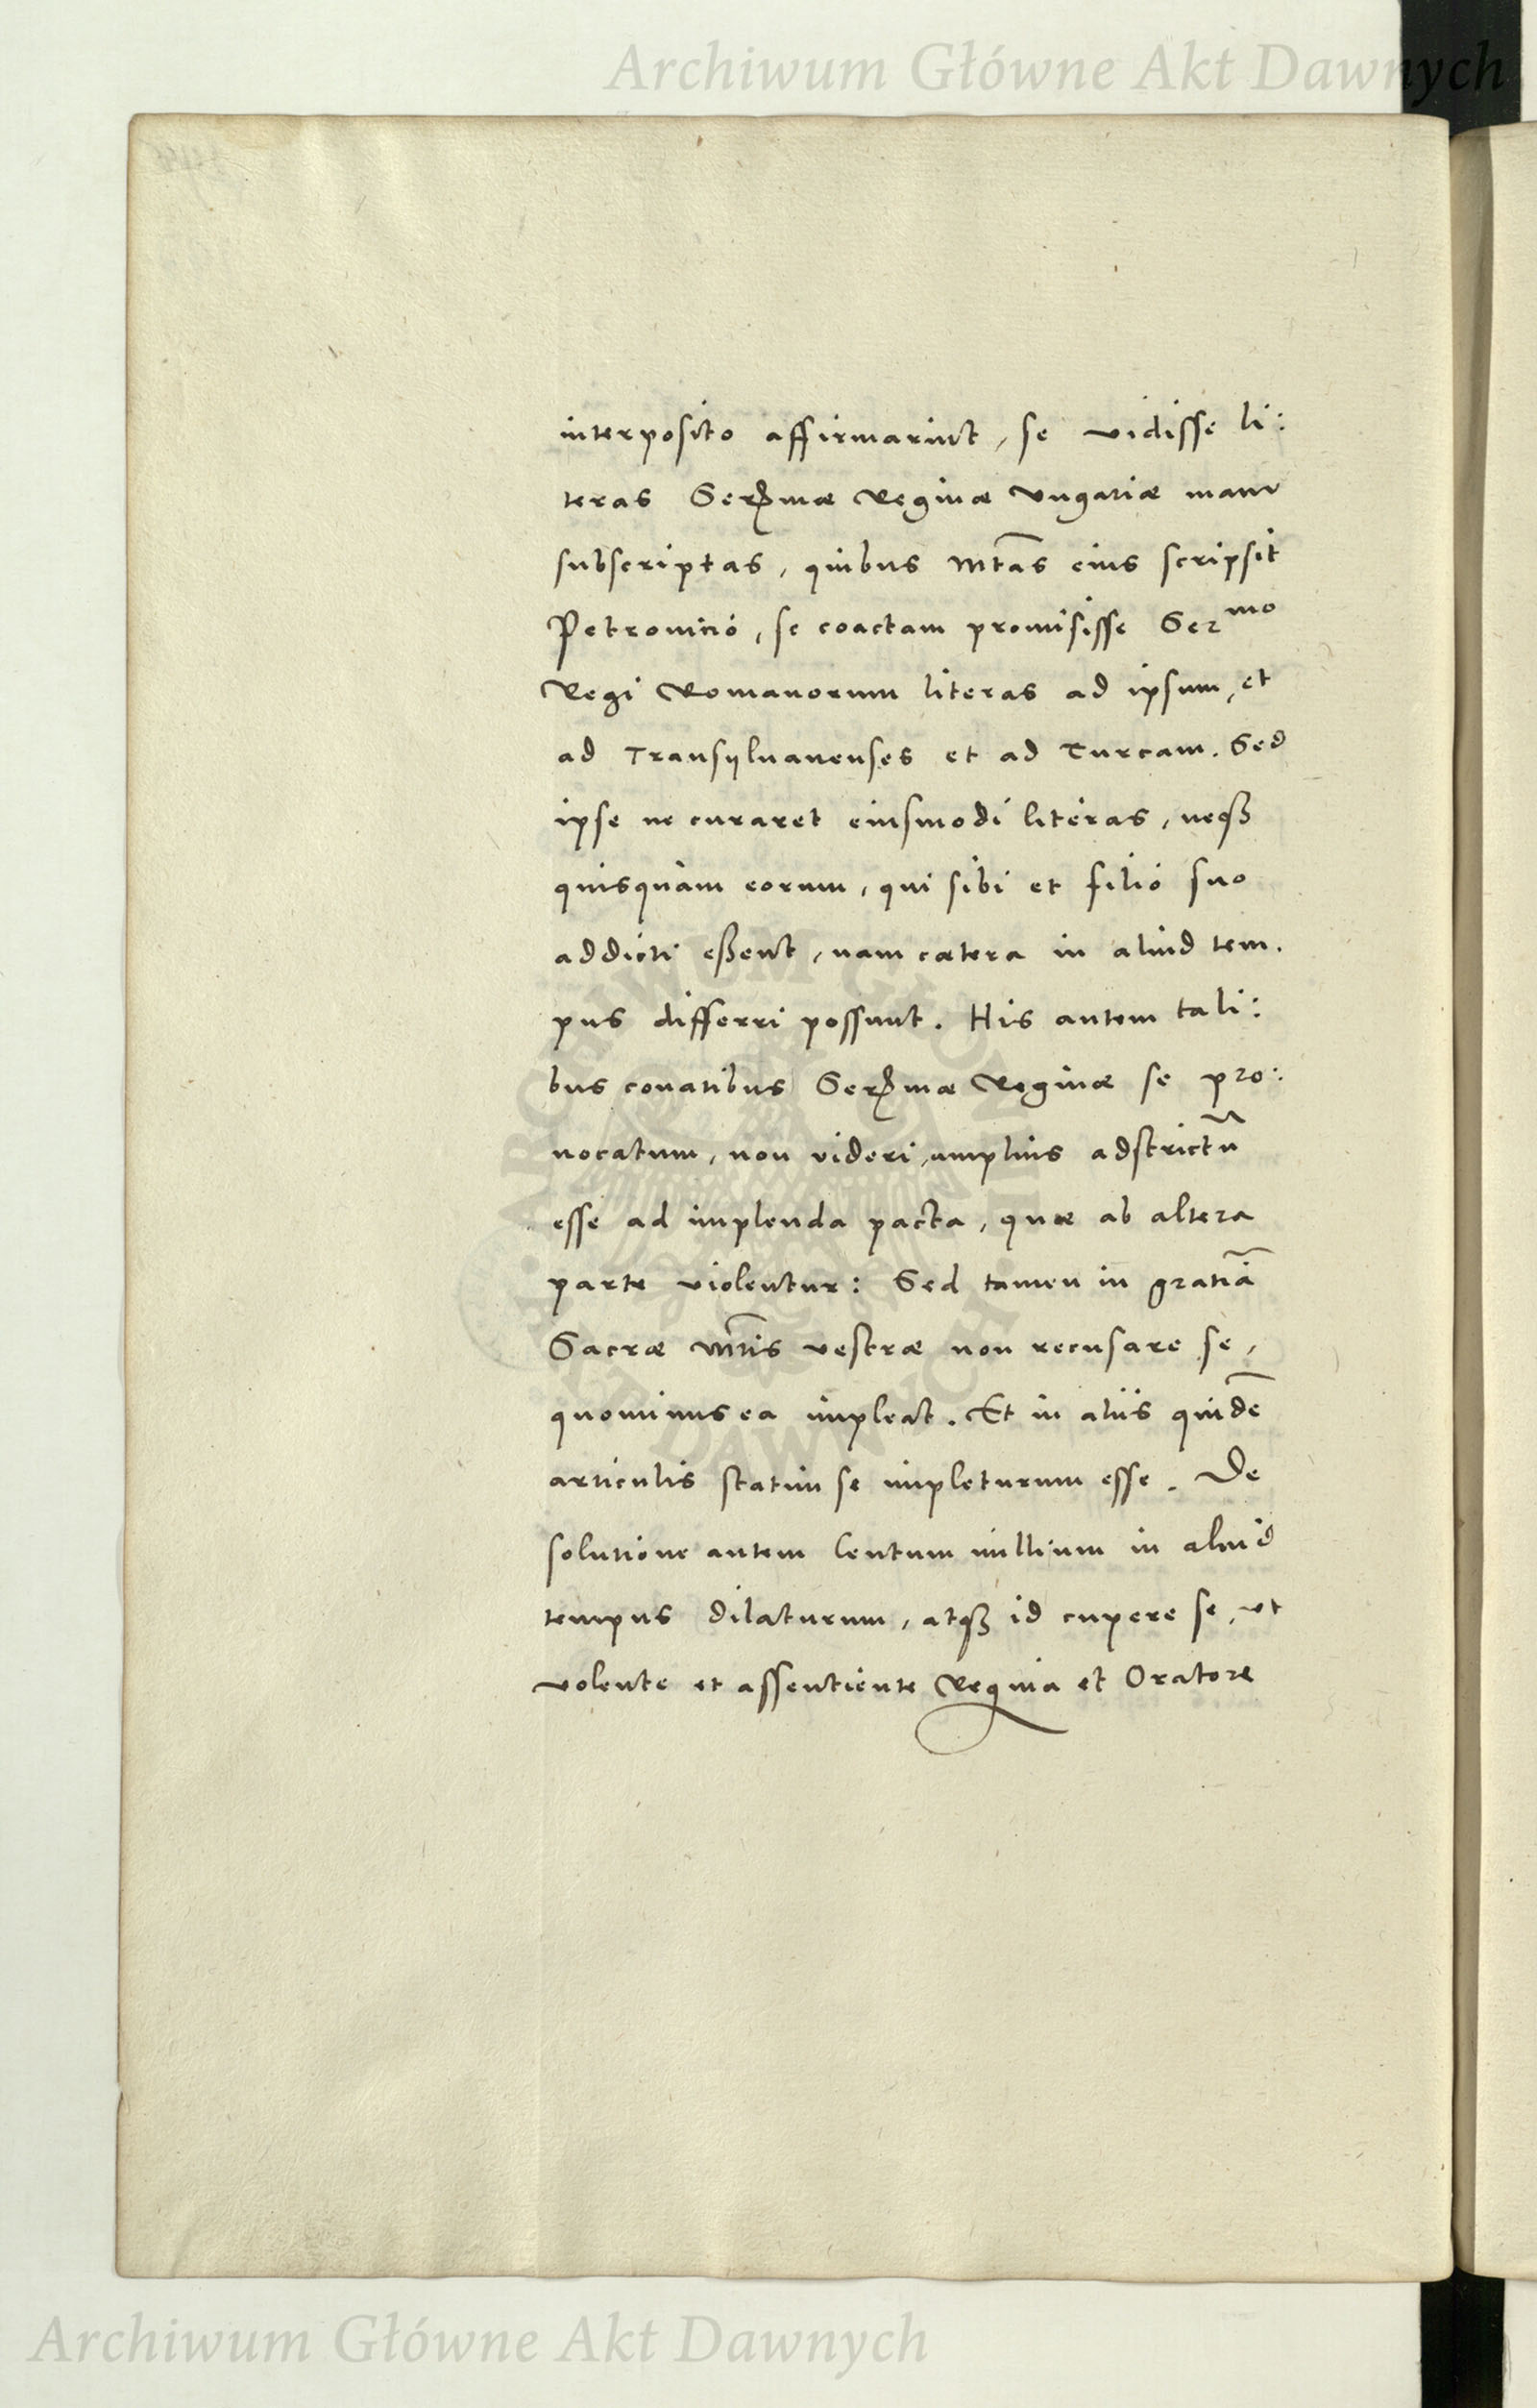 Archiwum Główne Akt Dawnych
interposito affirmarint, se vidisse li:
teras Serꝰmæ Reginæ Vngariæ manu
subscriptas, quibus Mtas eius scripsit
Petrouitio, se coactam promisisse Ser^mo
Regi Romanorum literas ad ipsum, et
ad Transyluanenses et ad Turcam. Sed
ipse ne curaret eiusmodi literas, neqȝ
quisquam eorum, qui sibi et filio suo
addicti eßent, nam cætera in aliud tem.
pus differri possunt. His autem tali:
bus conatibus Serꝰmæ Reginæ se pro:
uocatum, non videri amplius adstrictũ
esse ad implenda pacta, quæ ab altera
parte violentur: Sed tamen in gratiã
Sacræ Mtis vestræ non recusare se,
quominus ea impleat. Et in aliis quidẽ
articulis statim se impleturum esse. De
solutione autem Centum millium in aliud
tempus dilaturum, atqȝ id cupere se, vt
volente et assentiente Regina et Oratore
Archiwum Główne Akt Dawnych